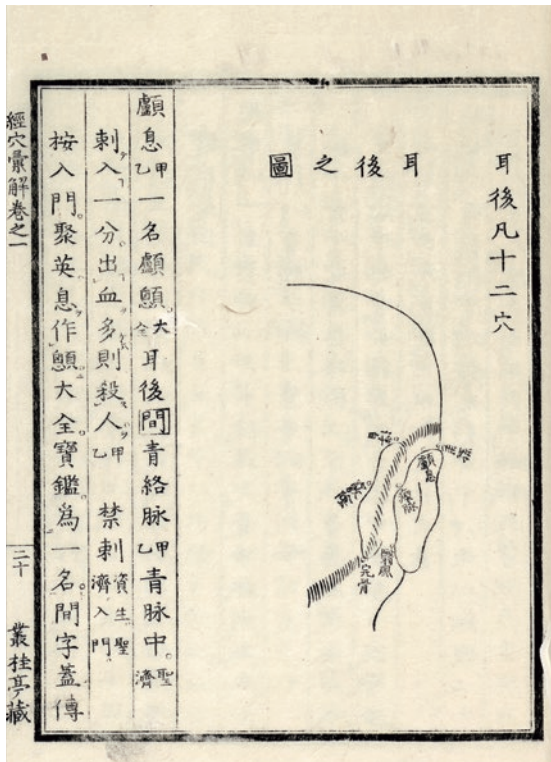 耳後凡十二穴
耳後之圖
顱息
瘈脈
完骨
顱息甲乙一名顱顖大全耳後間青絡脉甲乙青脉中聖濟
刺入一分出血多則殺人甲乙禁刺資生聖濟入門
按入門聚英息作顖大全寶鑑為一名間字蓋傳
經穴彙解卷之一
二十
叢桂亭藏